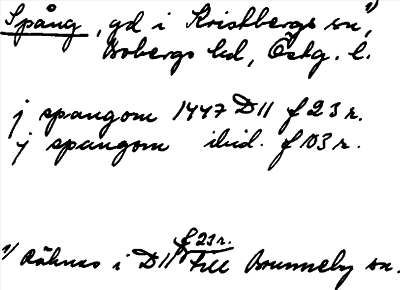 Spång, gd i Kristbergs sn¹⁾,
Bobergs hd, Östg. l.
j spangom 1447 D11 f 23 r.
j spangom ibid. f 103 r.
¹⁾ Räknas i D11 f 23 r. till Brunneby sn.